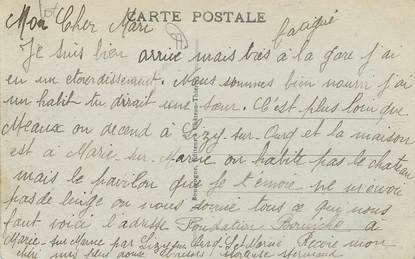 CARTE POSTALE
Mon Cher Mari
fatigué
Je suis bien arrivé mais bas à la gare j'ai
eu un etourdissement. Nous sommes bien nourri j'ai
un habit tu dirait une sœur. C'est plus loin que
Meaux on decend à Lizy-sur-Ourq et la maison
est a Marie-sur-Marne on habite pas le chateau
mais le pavillon que je t'envoie ne m'envoie
pas de linge on nous donne tous ce qu'il nous
faut voici l'adresse Fondation a
Marie sur Marne par Lizy sur Ourq Set Marne Recoie mon
cheri mes plus doux